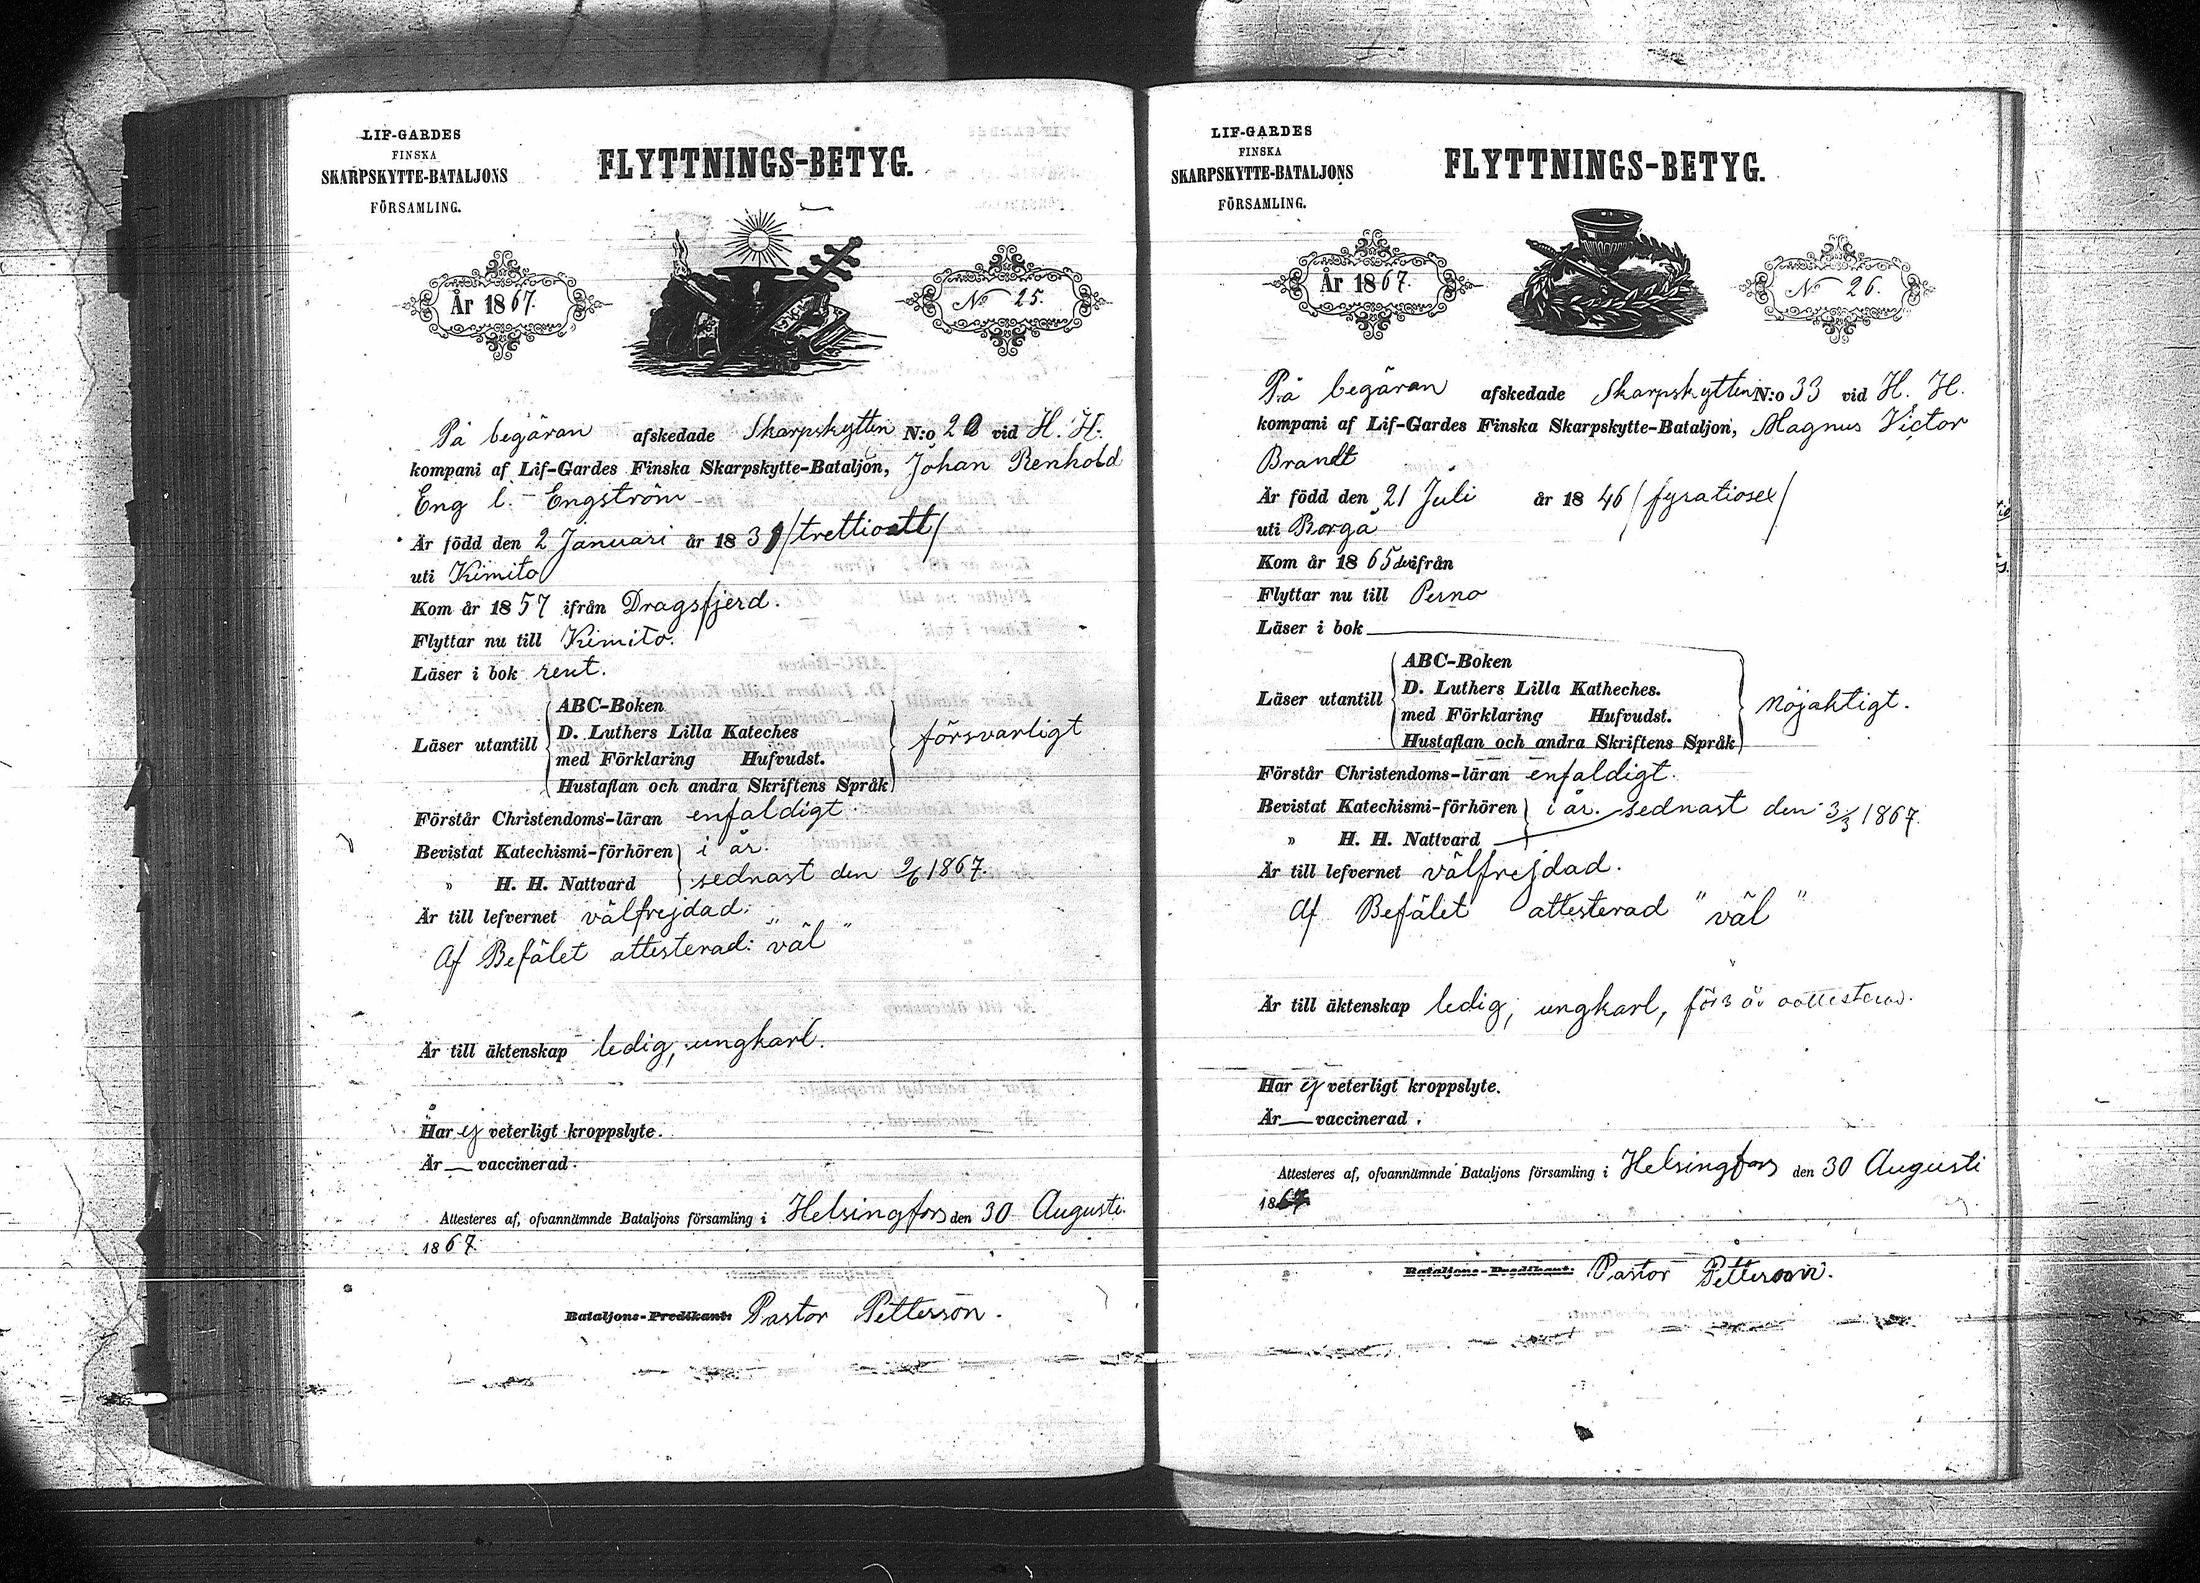 LIF-GARDES
FINSKA
SKARPSKYTTE-BATALJONS
FÖRSAMLING.
FLYTTNINGS-BETYG.
År 1867.
No 25.
På begäran afskedade Skarpskytten N:o 20 vid H. H.
kompani af Lif-Gardes Finska Skarpskytte-Bataljon, Johan Renhold
Eng l. Engström
Är född den 2 Januari år 1838 /trettioått/
uti Kimito
Kom år 1857 ifrån Dragsfjerd.
Flyttar nu till Kimito.
Läser i bok rent.
ABC-Boken
D. Luthers Lilla Kateches
Läser utantill med Förklaring Hufvudst. försvarligt
Hustaflan och andra Skriftens Språk
Förstår Christendoms-läran enfaldigt
Bevistat Katechismi-förhören i år.
» H. H. Nattvard sednast den 2/6 1867.
Är till lefvernet välfrejdad.
Af Befälet attesterad: "väl"
Är till äktenskap ledig, ungkarl.
Har ej veterligt kroppslyte.
Är — vaccinerad.
Attesteres af, ofvannämnde Bataljons församling i Helsingfors den 30 Augusti.
1867.
Bataljons-Predikant: Pastor Petterson.
LIF-GARDES
FINSKA
SKARPSKYTTE-BATALJONS
FÖRSAMLING.
FLYTTNINGS-BETYG.
År 1867.
No 26.
På begäran afskedade Skarpskytten N:o 33 vid H. H.
kompani af Lif-Gardes Finska Skarpskytte-Bataljon, Magnus Victor
Brandt
Är född den 21 Juli år 1846 /fyratiosex/
uti Borgå
Kom år 1865 derifrån
Flyttar nu till Perno
Läser i bok
ABC-Boken
D. Luthers Lilla Katheches.
Läser utantill med Förklaring Hufvudst. nöjaktigt.
Hustaflan och andra Skriftens Språk
Förstår Christendoms-läran enfaldigt.
Bevistat Katechismi-förhören i år. sednast den 3/3 1867.
» H. H. Nattvard
Är till lefvernet välfrejdad.
Af Befälet attesterad "väl"
Är till äktenskap ledig, ungkarl,
Har ej veterligt kroppslyte.
Är — vaccinerad.
Attesteres af, ofvannämnde Bataljons församling i Helsingfors den 30 Augusti
1867.
Bataljons-Predikant: Pastor Petterson.